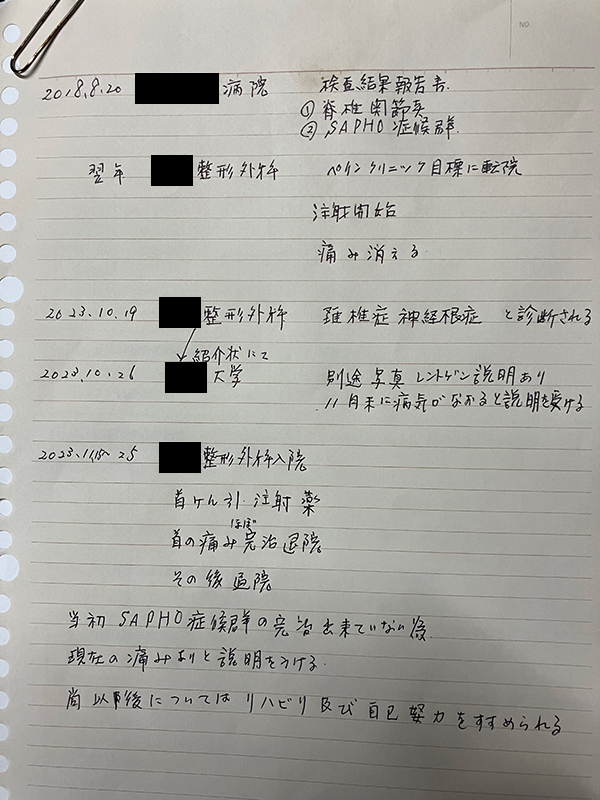 NO.
2018.8.20 病院 検査結果報告書.
① 脊椎関節炎
② SAPHO 症候群.
翌年 整形外科 ペインクリニック目標に転院
注射開始
痛み消える
2023.10.19 整形外科 頚椎症 神経根症 と診断される
紹介状にて
2023.10.26 大学 別途 写真 レントゲン説明あり
11月末に病気がなおると説明を受ける
2023.11.15〜25 整形外科入院
首けん引. 注射 薬
ほぼ
首の痛み完治退院
その後 退院
当初 SAPHO症候群の完治出来ていない為
現在の痛みありと説明をうける.
尚 以降後についてはリハビリ及び自己努力をすすめられる